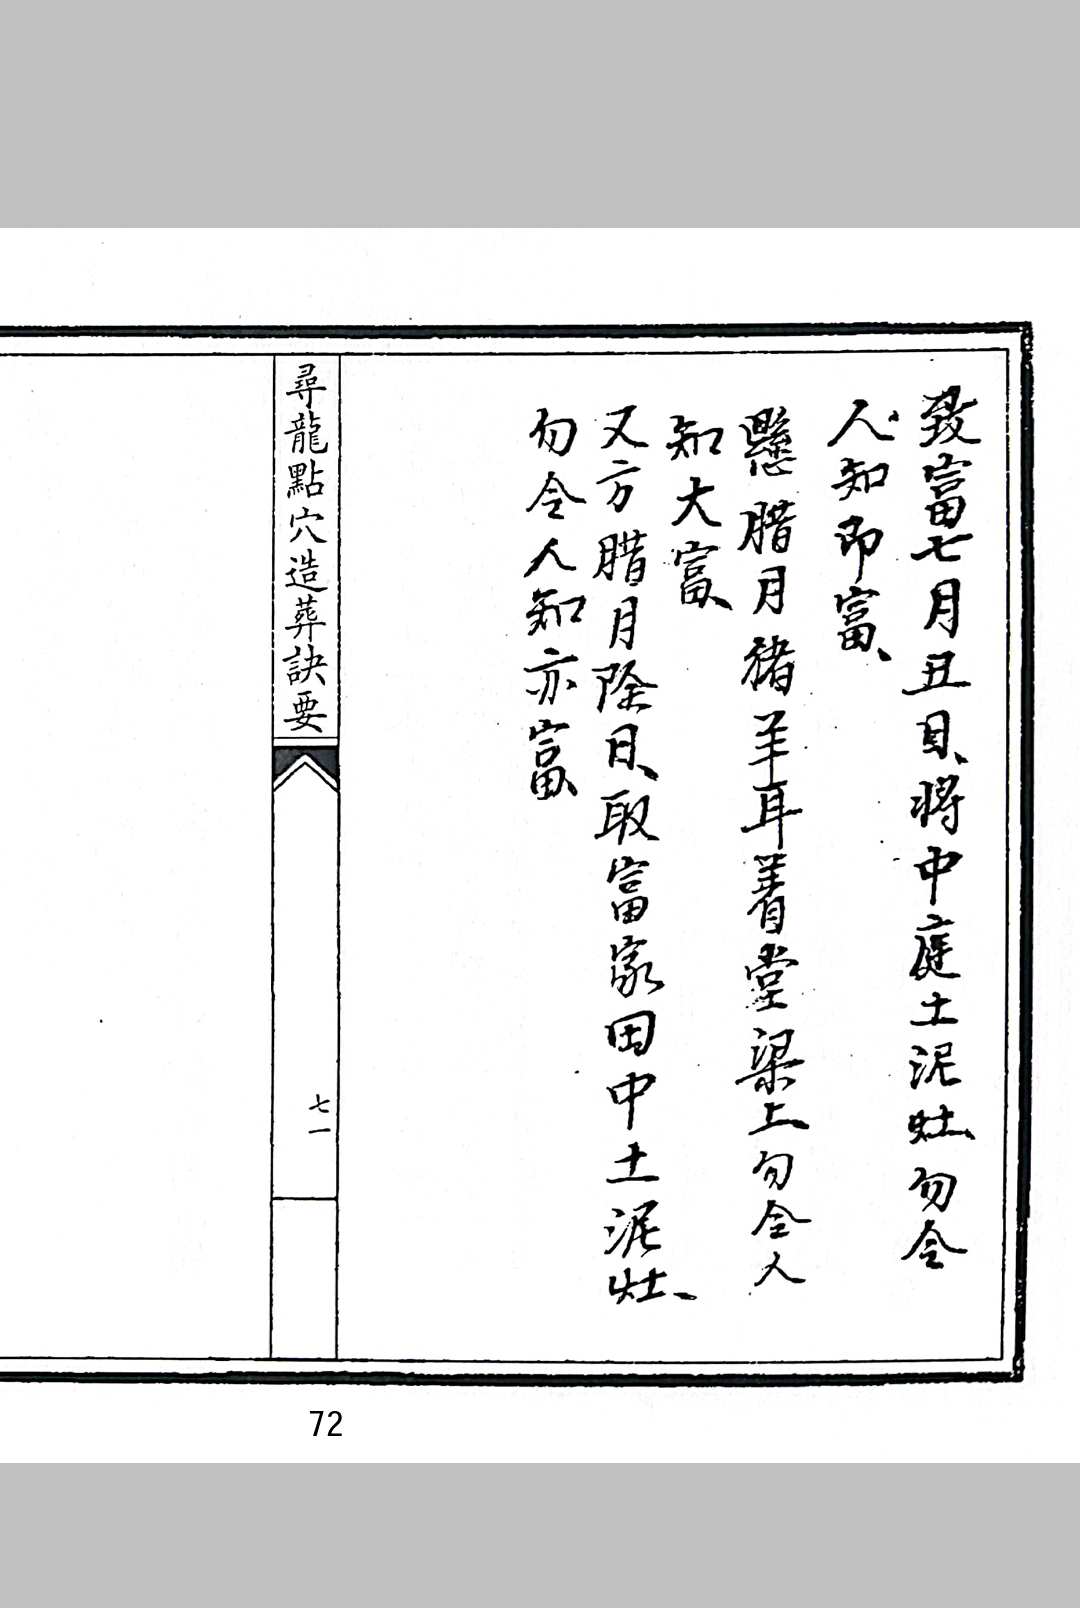 致富七月丑日、將中庭土泥灶、勿令
人知即富、
懸腊月豬羊耳着堂梁上、勿令人
知大富、
又方腊月除日、取富家田中土泥灶、
勿令人知亦富、
尋龍點穴造葬訣要
七一
72